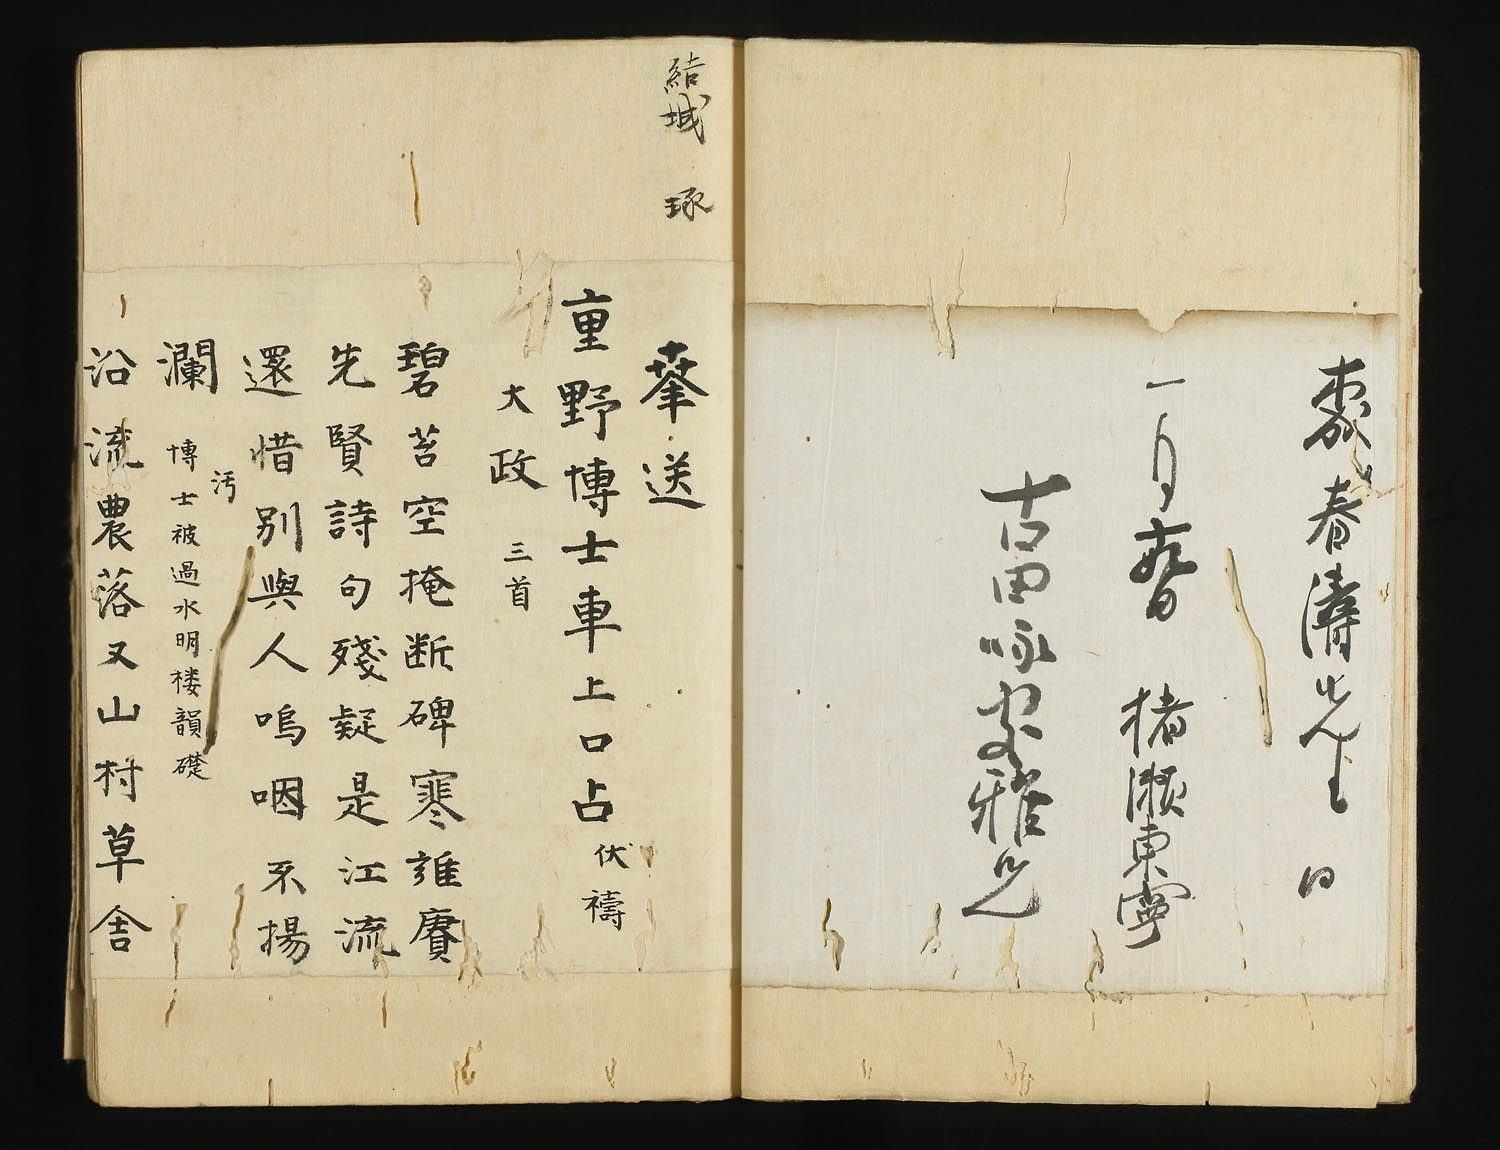 春濤先生
一月
楮瀬東寧
古田咏処雅兄
結城 琢
奉送
重野博士車上口占 伏禱
大政 三首
碧苔空掩断碑寒誰賡
先賢詩句残疑是江流
還惜別與人嗚咽不揚
瀾 博士被過水明楼韻礎
汚
沿流農落又山村草舎